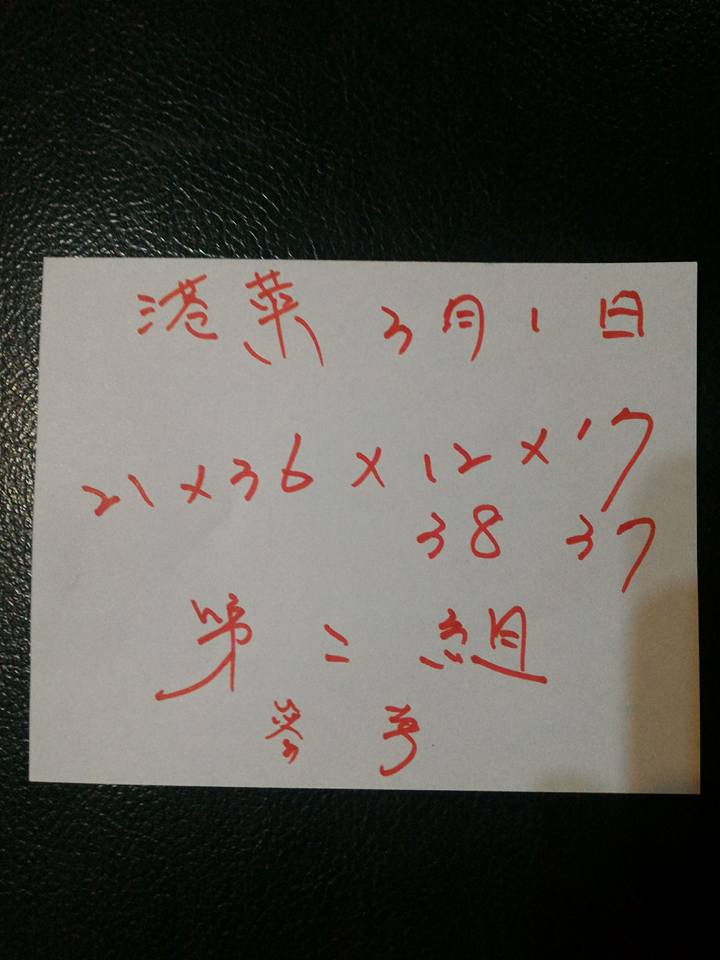 港菜 3月1日
21 x 36 x 12 x 17
38 37
第二組
參考